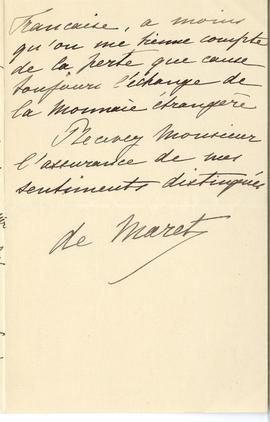 Francaise, a moins
qu'on me tienne compte
de la perte que cause
toujours l'échange de
la monnaie étrangère
Recevez Monsieur
l'assurance de mes
sentiments distingués
de Maret